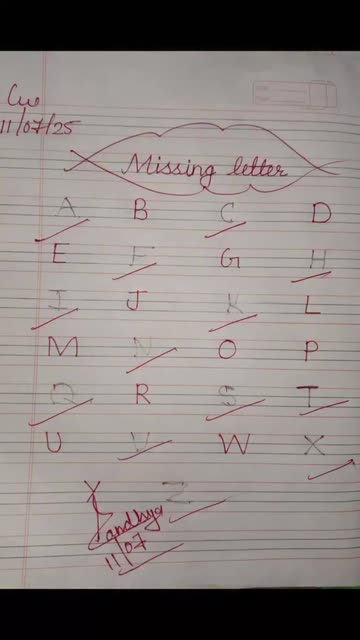 Cw
11/07/25
Missing letter
A B C D
E F G H
I J K L
M N O P
Q R S T
U V W X
Y Z
Sandhya
11/07